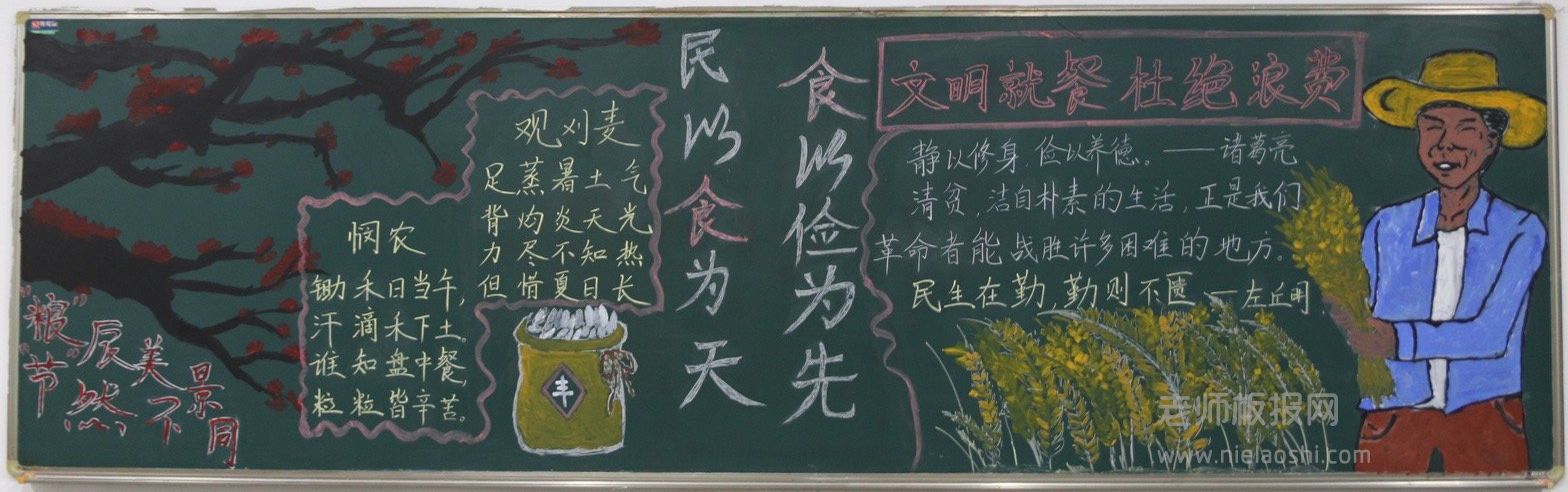 "粮"辰美景
"节"然不同
悯农
锄禾日当午,
汗滴禾下土。
谁知盘中餐,
粒粒皆辛苦。
观刈麦
足蒸暑土气
背灼炎天光
力尽不知热
但惜夏日长
丰
民以食为天
食以俭为先
文明就餐 杜绝浪费
静以修身,俭以养德。——诸葛亮
清贫,洁自朴素的生活,正是我们
革命者能战胜许多困难的地方。
民生在勤,勤则不匮——左丘明
老师板报网
www.nielaoshi.com